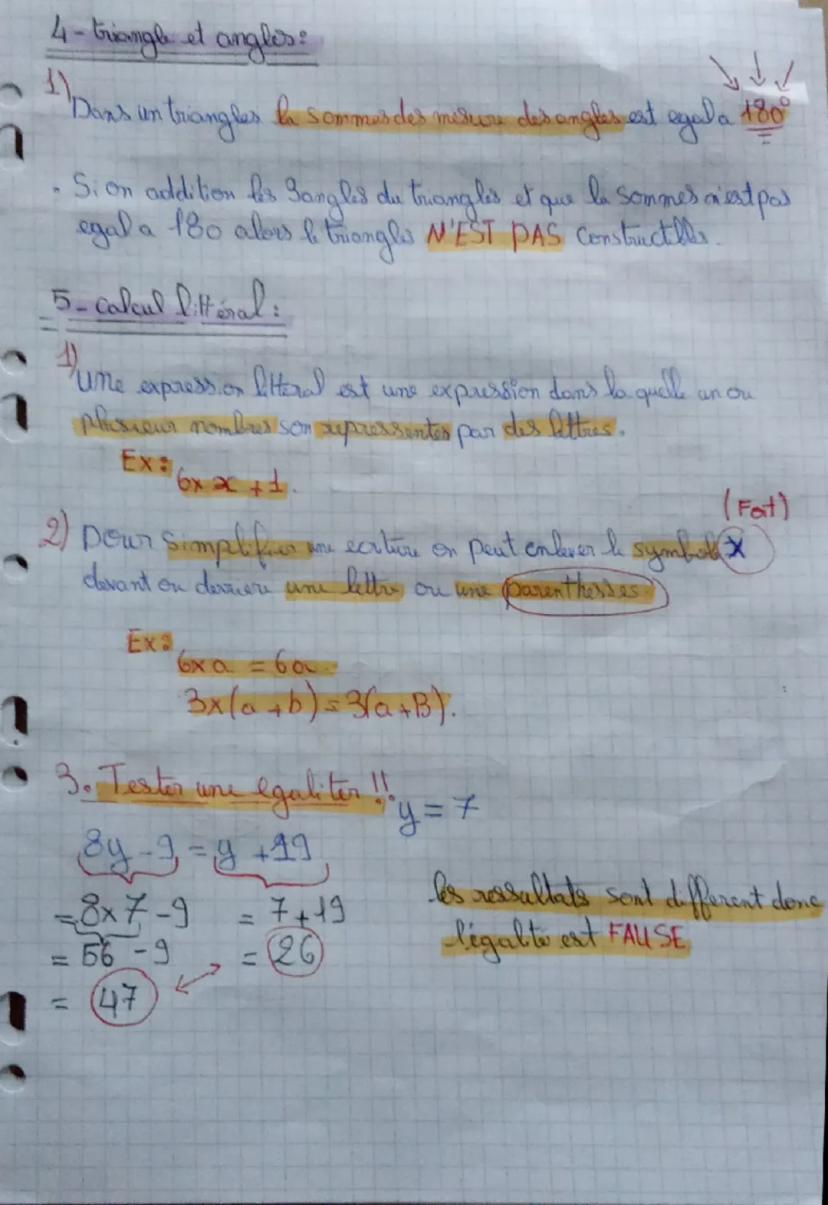 4-triangle et angles:
1)
Dans un triangles la sommes des mesure des angles est egal a 180°
• Si on addition les 3 angles du triangles et que la sommes n'est pas
egal a 180 alors le triangles N'EST PAS constructibles.
5-calcul littéral:
1)
une expression litteral est une expression dans la quelle un ou
plusieur nombres son repressentes par des lettres.
Ex: 6x x +1.
(Fat)
2) Pour simplifier une ecriture on peut enlever le symbole x
devant ou derriere une lettre ou une parenthesses
Ex:
6xa = 6a
3x(a+b)=3(a+B).
3. Tester une egaliter !!. y = 7
8y - 9 = y + 19
=8x7-9 = 7+19
les ressultats sont different donc
= 56 - 9 = 26
l'égalité est FAUSE
= 47